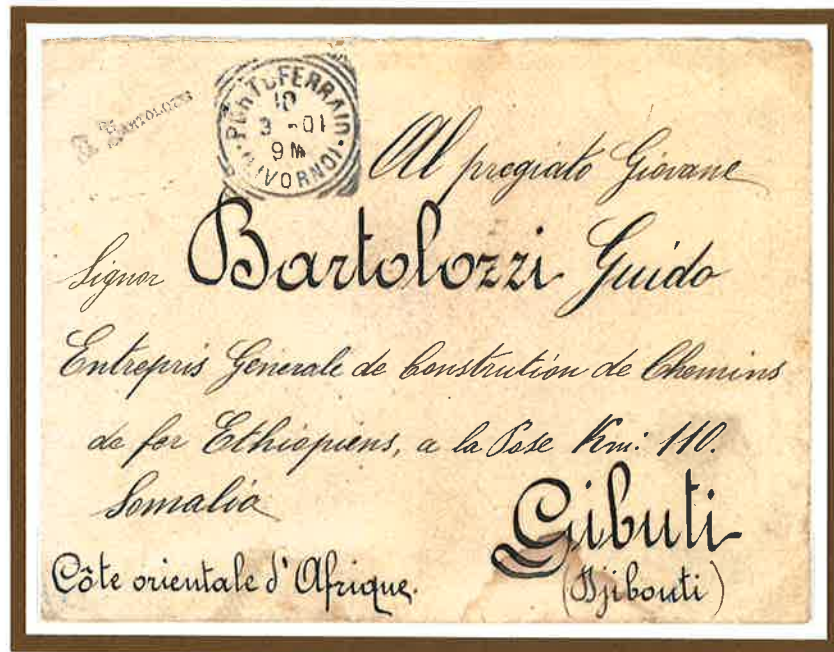 BARTOLOZZI
PORTOFERRAIO
10
3 -01
9M
(LIVORNO)
Al pregiato Giovane
Signor Bartolozzi Guido
Entrepris Generale de Constrution de Chemins
de fer Ethiopiens, a la Pose Km: 110.
Somalia
Gibuti
Côte orientale d'Afrique.
(Djibouti)